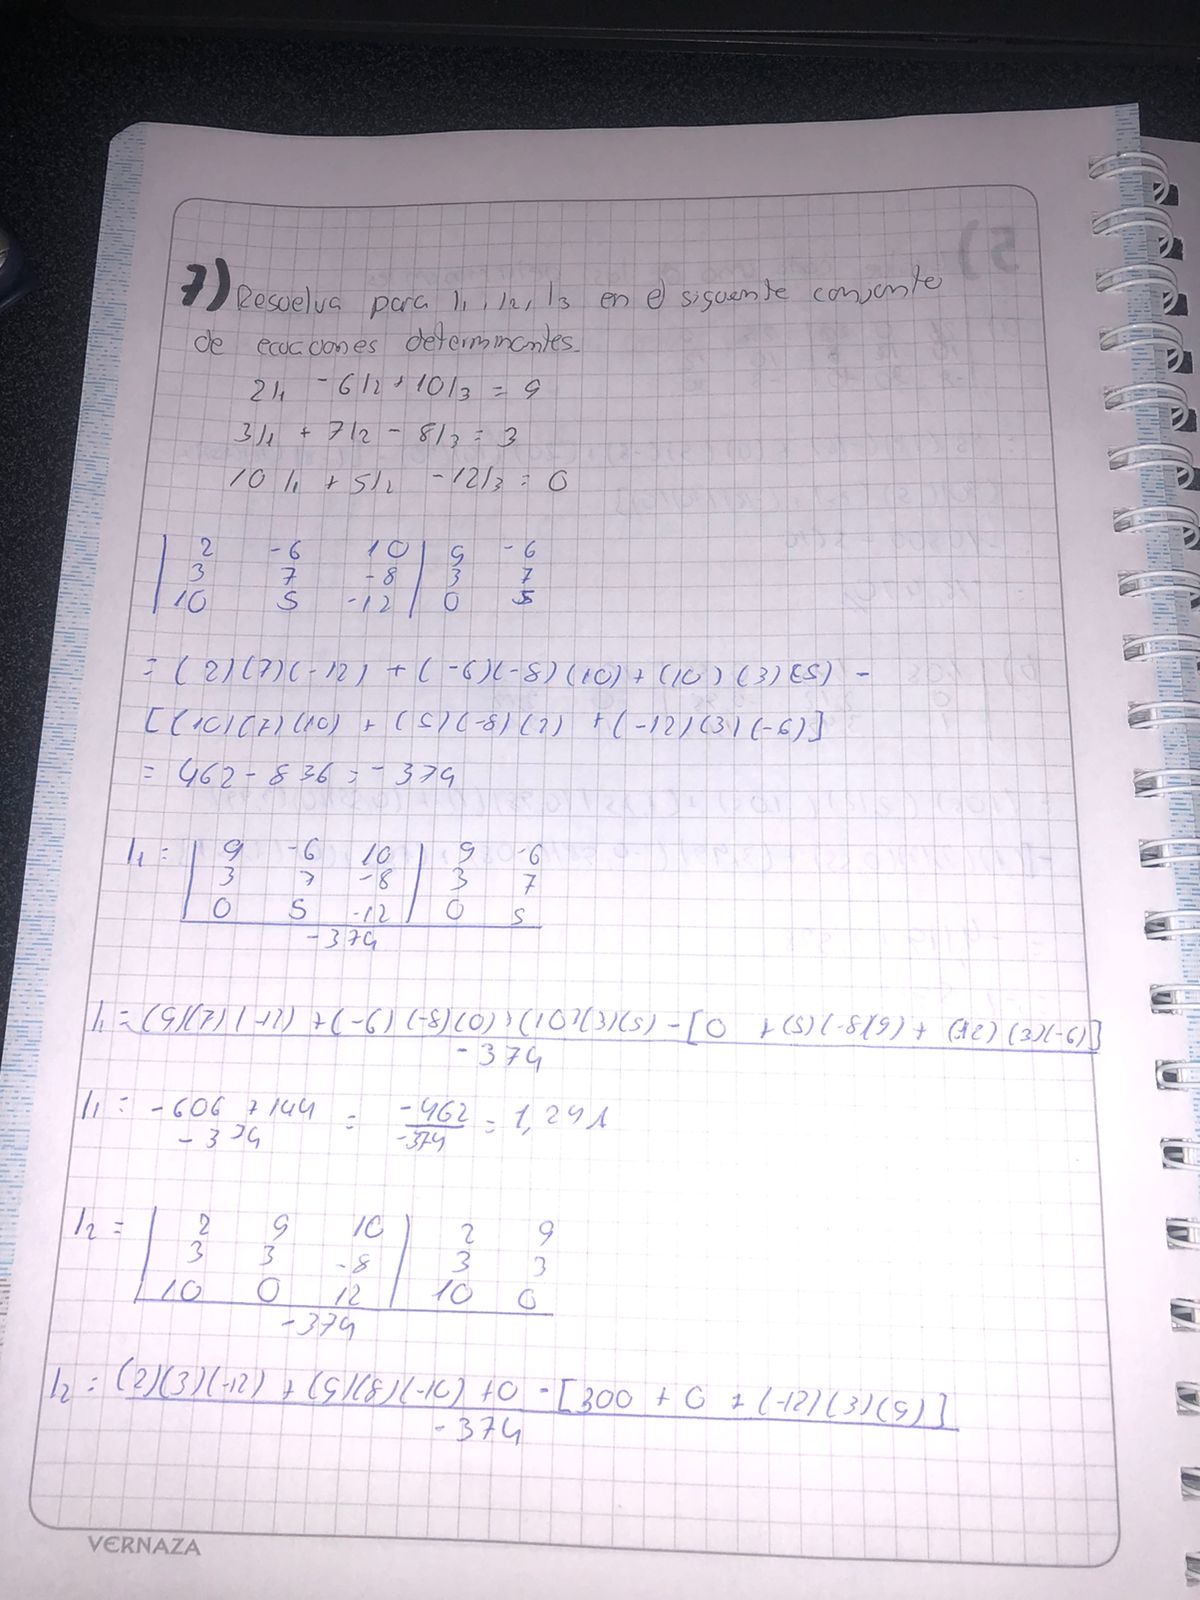 7) Resuelva para I1, I2, I3 en el siguente conjonte
de ecuaciones determinantes.
2I1 -6I2 + 10I3 = 9
3I1 + 7I2 - 8I3 = 3
10 I1 + 5I2 - 12I3 = 0
| 2 -6 10 | 9 -6
| 3 7 -8 | 3 7
| 10 5 -12 | 0 5
= (2)(7)(-12) + (-6)(-8)(10) + (10)(3)(5) -
[(10)(7)(10) + (5)(-8)(2) + (-12)(3)(-6)]
= 462 - 836 = -374
I1 = | 9 -6 10 | 9 -6
| 3 7 -8 | 3 7
| 0 5 -12 | 0 5
-374
I1 = (9)(7)(-12) + (-6)(-8)(0) + (10)(3)(5) - [0 + (5)(-8)(9) + (-12)(3)(-6)]
-374
I1 = -606 + 144 = -462 = 1,241
-374 -374
I2 = | 2 9 10 | 2 9
| 3 3 -8 | 3 3
| 10 0 12 | 10 0
-374
I2 = (2)(3)(-12) + (9)(8)(-10) + 0 - [300 + 0 + (-12)(3)(9)]
-374
VERNAZA